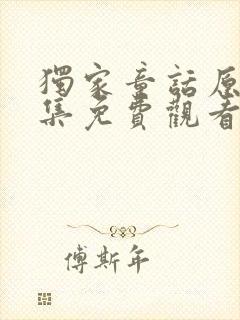 獨家童話原
集免費觀看
傅斯年